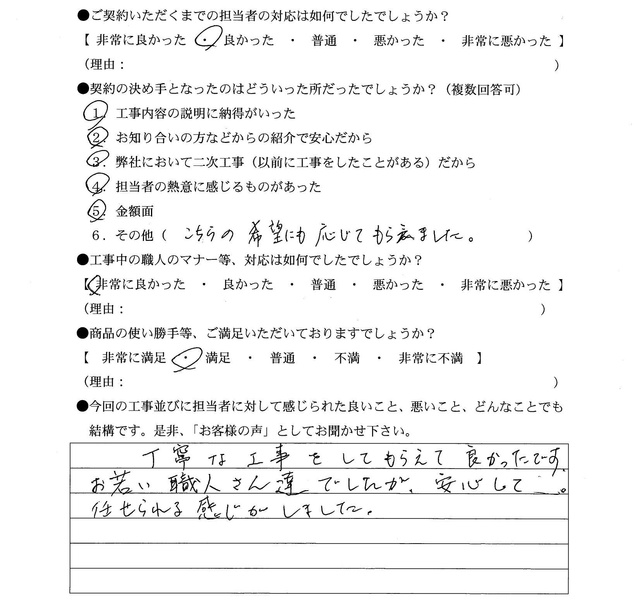 ●ご契約いただくまでの担当者の対応は如何でしたでしょうか？
【 非常に良かった ・ 良かった ・ 普通 ・ 悪かった ・ 非常に悪かった 】
（理由： ）
●契約の決め手となったのはどういった所だったでしょうか？（複数回答可）
1．工事内容の説明に納得がいった
2．お知り合いの方などからの紹介で安心だから
3．弊社において二次工事（以前に工事をしたことがある）だから
4．担当者の熱意に感じるものがあった
5．金額面
6．その他（ こちらの希望にも応じてもらえました。 ）
●工事中の職人のマナー等、対応は如何でしたでしょうか？
【 非常に良かった ・ 良かった ・ 普通 ・ 悪かった ・ 非常に悪かった 】
（理由： ）
●商品の使い勝手等、ご満足いただいておりますでしょうか？
【 非常に満足 ・ 満足 ・ 普通 ・ 不満 ・ 非常に不満 】
（理由： ）
●今回の工事並びに担当者に対して感じられた良いこと、悪いこと、どんなことでも
結構です。是非、「お客様の声」としてお聞かせ下さい。
丁寧な工事をしてもらえて良かったです。
お若い職人さん達でしたが、安心して
任せられる感じがしました。